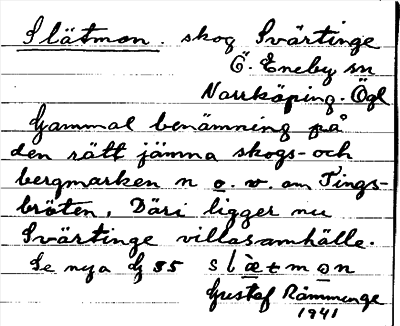 Slätmon. skog Svärtinge
Ö. Eneby sn
Norrköping. Ögl
Gammal benämning på
den rätt jämna skogs- och
bergmarken n o. v. om Tings-
bröten, Däri ligger nu
Svärtinge villasamhälle.
Se nya G 35 slätmon
Gustaf
1941